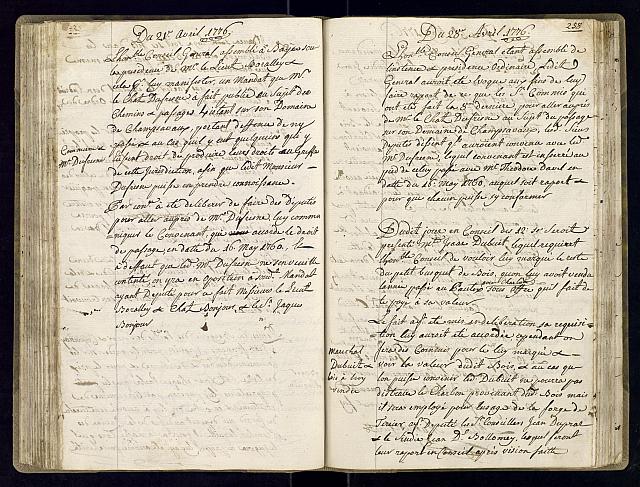 Du 21e Avril 1776.
L'hon.ble Conseil General assemblé à
la presidence de Mr. le Lieut Baralley &
manifester, un Mandat que Mr.
le Chat. Dufresne a fait publié au Sujet des
Chemins & passages 4 etant sur son Domaine
de Champsavaux, portant deffense de n'y
passé & au cas qu'il y eut quelqu'un qui y
ait droit de produire leurs droits au Greffe
de cette jurisdiction, afin que ledit Monsieur
Dufresne puisse en prendre connoissance.
Commune &
Mr Dufresne
Par con.l a eté deliberer de faire des Deputés
pour aller aupres de Mr. Dufresne luy commu=
niquer le Convenant, qui accorde le droit
de passage en datte du 16. May 1760. &
a deffaut que led. Mr. Dufresne ne s'en veuille
contenté, on sera en oposition a Mandat
ayant Deputé pour ce fait Messieurs le Lieut.
Baralley & Chat. Bonjour, & le Sr. Jaques
Bonjour
238
Du 28e Avril 1776.
L'hon.ble Conseil General etant assemblé de
la presidence Ordinaire, Ledit
General auroit eté pour fins de luy
faire raport de ce que les Srs. Commis qui
ont eté fait la 8e derniere, pour aller aupres
de Mr. le Chat Dufresne au Sujet du passage
sur son Domaine de Champsavaux, les Srs
Deputés disent qu'auroient convenu avec led.
Mr. Dufresne, lequel convenant est inseré au
pied de celuy passé avec Mr. Theodore Davel en
datte du 16. May 1760. auquel soit raport &
pour que chacun puisse s'y conformer
Dudit jour en Conseil des 12 se seroit
presenté Mre. Isaac Dubuit lequel requiert
l'hon.ble Conseil de vouloir luy marquer le reste
du petit bosquet de Bois, qu'on luy avoit vendu
l'année passée au
sous Offre qu'il fait de
le payé a sa valeur.
Le fait ayt eté mis en deliberation sa requisi=
tion luy auroit eté accordée cependant on
fera des Commis pour le luy marqué &
voir la valeur dudit Bois, & au cas qu'=
on puisse convenir led. Dubuit ne pourra pas
distraire le Charbon provenant dud. Bois mais
il sera employé pour l'usage de la forge de
ayt. Deputé les Srs. Conseillers Jean Duprat
& le Sieur Jean D. Bollomey, lesquels feront
leur raport en Conseil apres vision faitte
Marechal
Dubuit &
bois a luy
vendre